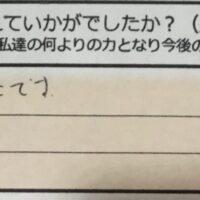 えていかがでしたか？（
私達の何よりの力となり今後の
とです